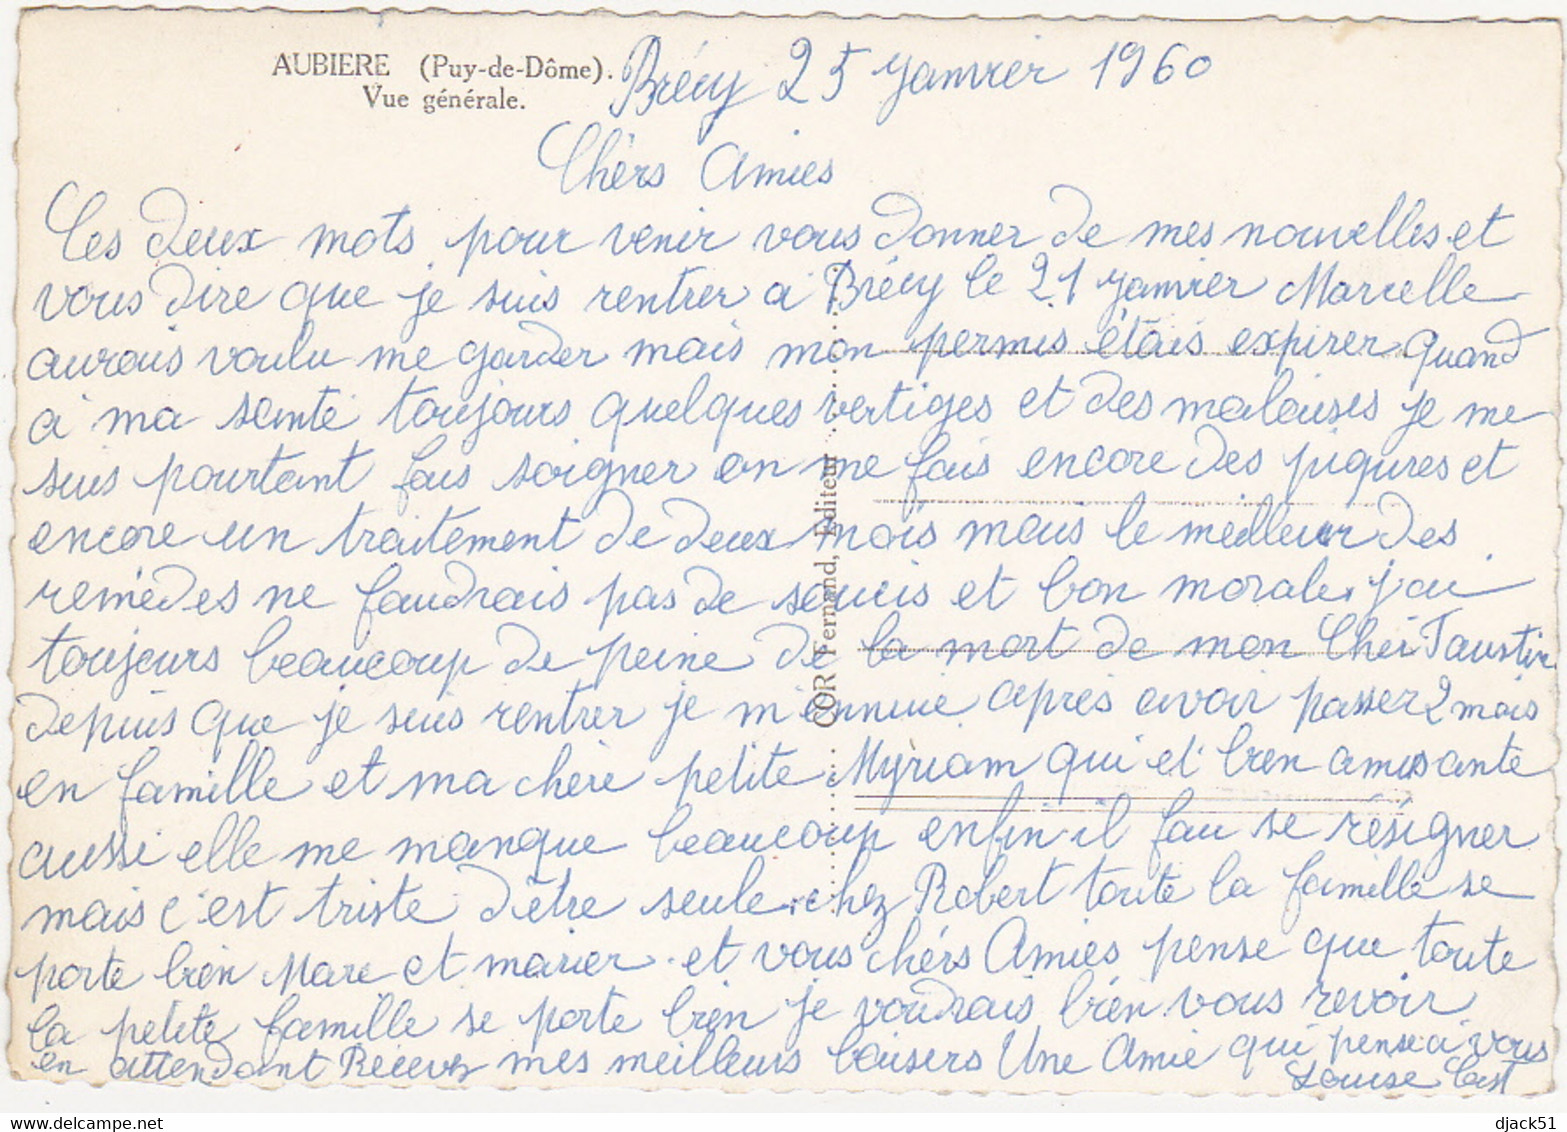 AUBIERE (Puy-de-Dôme).
Vue générale.
Brécy 25 janvier 1960
Chèrs Amies
Ces deux mots pour venir vous donner de mes nouvelles et
vous dire que je suis rentrer a Brécy le 21 janvier Marcelle
aurais voulu me garder mais mon permis étais expirer quand
a ma santé toujours quelques vertiges et des malaises je me
suis pourtant fais soigner on me fais encore des piqures et
encore un traitement de deux mois mais le meilleur des
remèdes ne faudrais pas de soucis et bon morale j'ai
toujours beaucoup de peine de la mort de mon Cher Faustin
depuis que je suis rentrer je m'ennuie après avoir passer 2 mois
en famille et ma chère petite Myriam qui et bien amusante
aussi elle me manque beaucoup enfin il fau se résigner
mais c'est triste d'être seule chez Robert toute la famille se
porte bien Marc et marier et vous chèrs Amies pense que toute
la petite famille se porte bien je voudrais bien vous revoir
en attendant Recevez mes meilleurs baisers Une Amie qui pense a vous
Louise
COR Fernand, Editeur
djack51